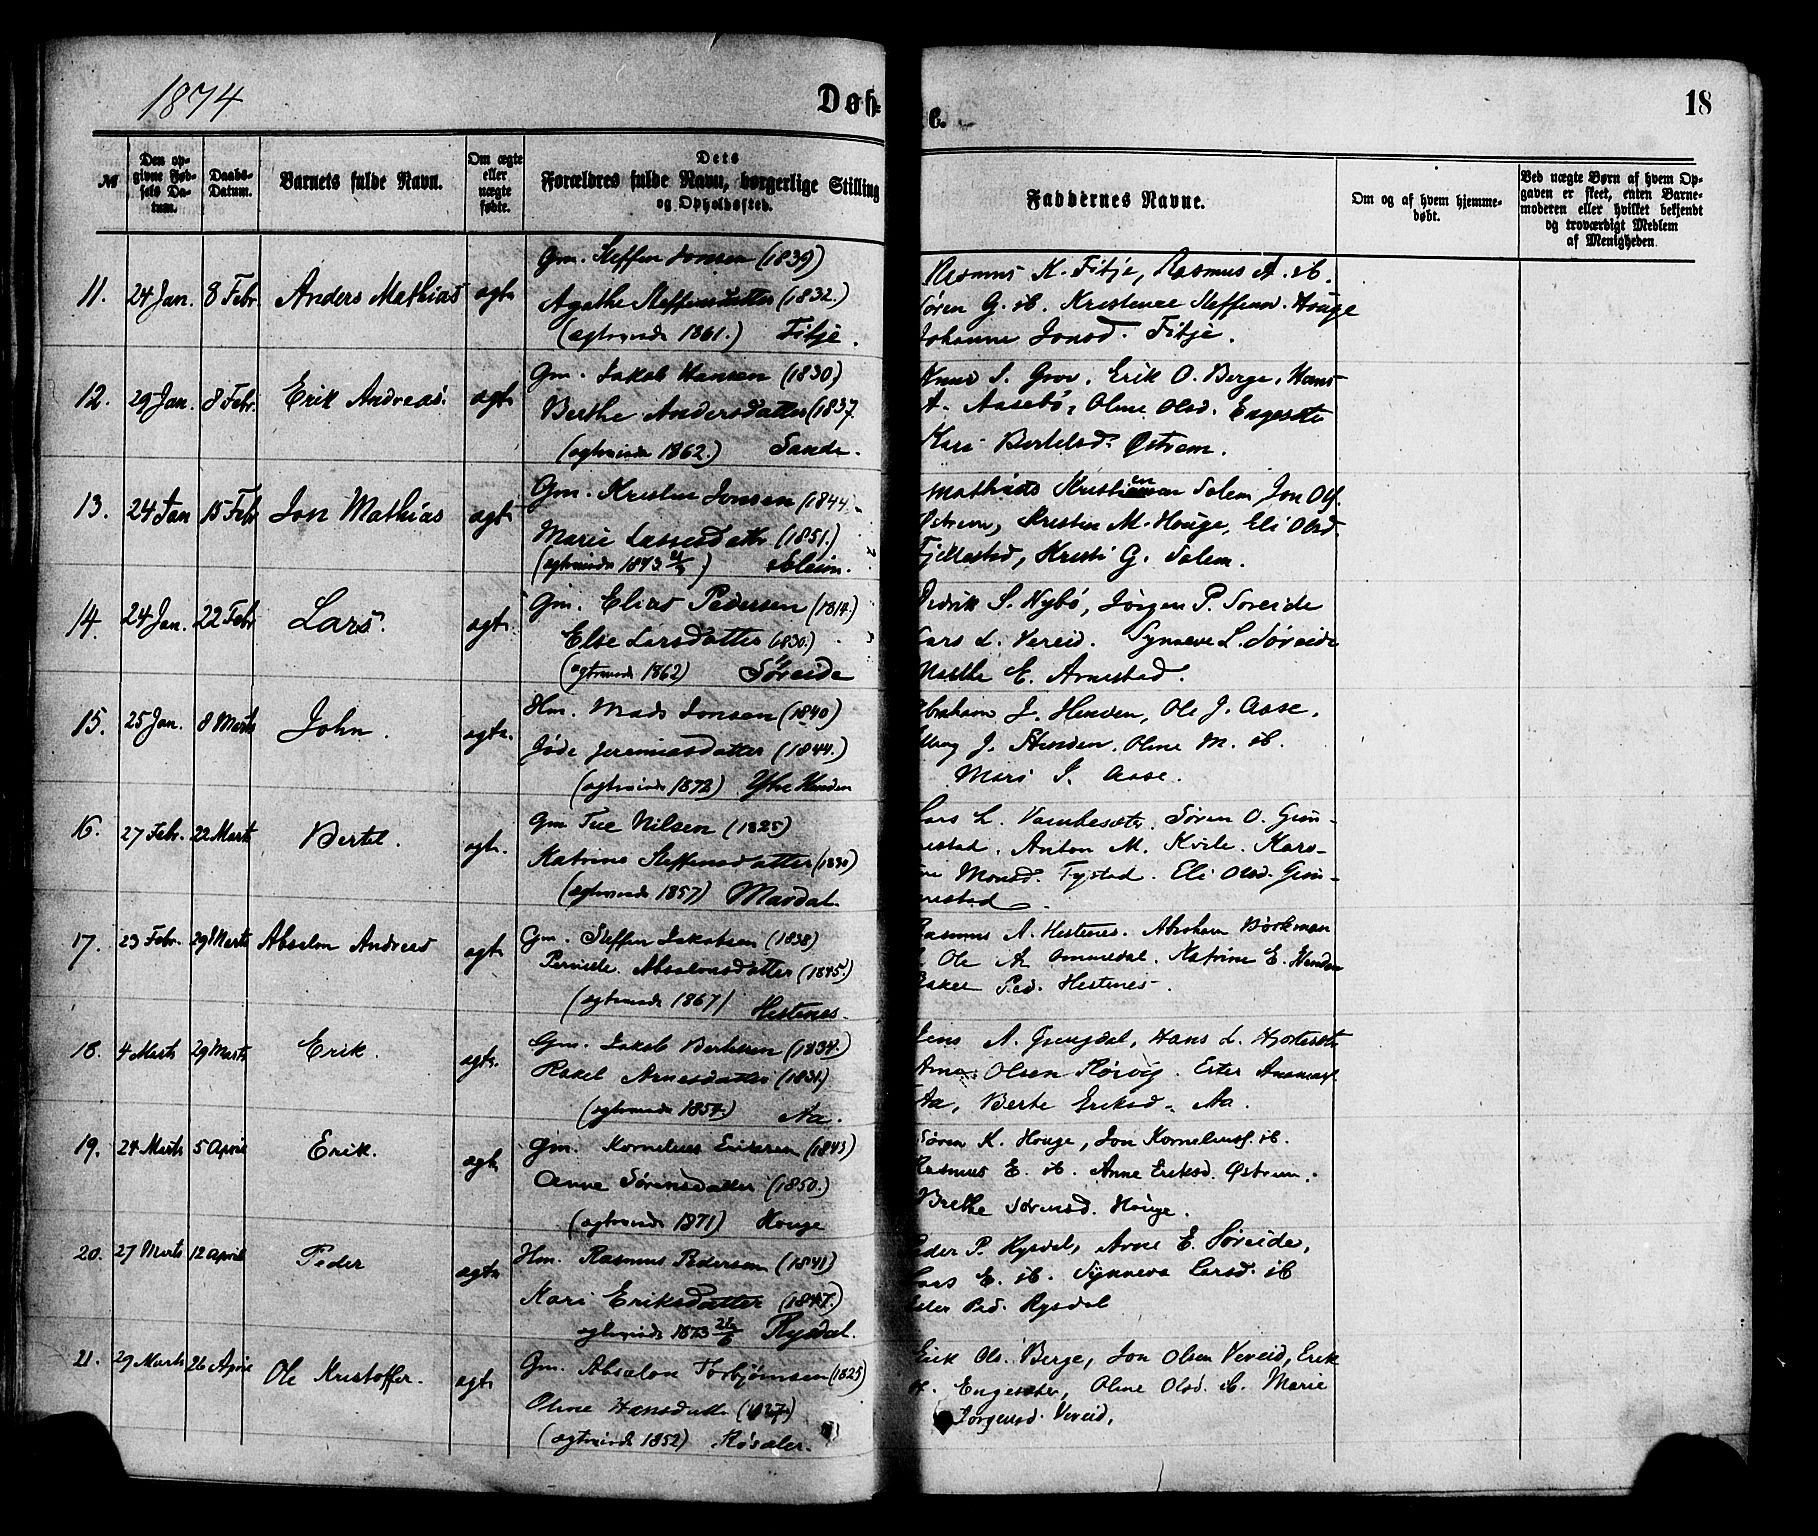 1874
Døbte.
18
№
Den opgivne Fødsels Datum.
Daabs-Datum.
Barnets fulde Navn.
Om ægte eller uægte født.
Dets Forældres fulde Navn, borgerlige Stilling og Opholdssted.
Faddernes Navne.
Om og af hvem hjemmedøbt.
Ved uægte Børn af hvem Opgaven er skeet, enten Barnemoderen eller hvilket bekjendt og troværdigt Medlem af Menigheden.
11. 24 Jan. 8 Febr. Anders Mathias ægte
Gm. Steffen Jonsen (1839)
Agathe Steffensdatter (1832.)
(ægteviede 1861.) Fitje.
Rasmus K. Fitje, Rasmus A. ib.
Søren G. ib. Kristence Steffensd. Houge
Johanne Jonsd. Fitje.
12. 29 Jan. 8 Febr. Erik Andreas. ægte
Gm. Jakob Hansen (1830)
Berthe Andersdatter (1837
(ægteviede 1862.) Sande.
S. Erik O. Berge, Hans
A. Aasebø, Oline Olsd. Engesæte
Kari Bertelsd. Østrem.
13. 24 Jan 15 Febr Jon Mathias ægte
Gm. Jonsen (1844)
Marie Lassesdatter (1851.)
(ægteviede 1873)
Mathias Kristiansen Solem, Jon Ols.
Østrem, Kristen M. Houge, Eli Olsd.
Fjellestad, Kristi G. Solem.
14. 24 Jan. 22 Febr Lars. ægte
Gm. Elias Pedersen (1814)
Else Larsdatter (1830.)
(ægteviede 1862) Søreide
Didrik S. Nybø, Jørgen P. Søreide
Lars L. Vereid. Synneve L. Søreide
E. Arnestad.
15. 25 Jan. 8 Marts John. ægte.
Hm. Mads Jonsen (1840)
Jøde Jeremiasdatter (1844.)
(ægteviede 1872) Ytre Henden
Abraham J. Henden, Ole J. Aase.
J. Henden. Oline M. ib.
Mari J. Aase.
16. 27 Febr. 22 Marts Bertel. ægte.
Gm Tue Nilsen (1825)
Katrine Steffensdatter (1830)
(ægteviede 1857) Mardal
Lars L. Søren O. Gim-
mestad. Anton M. Kvile. Kars-
Monsd. Fystad. Eli Olsd. Gim-
mestad.
17. 23 Febr. 29 Marts Absalon Andreas ægte
Gm. Steffen Jakobsen (1838)
Pernille Absalonsdatter (1845)
(ægteviede 1867) Hestenes
Rasmus A. Hestenes. Abraham Børkman
Ole A. Ommedal. Katrine E. Henden
Rakel Ped. Hestenes.
18. 4 Marts 29 Marts Erik. ægte.
Gm. Jakob Bertelsen (1834)
Rakel Arnesdatter (1831)
(ægteviede 1857) Aa.
Jens A. Gjengdal, Hans L. Hjortesæter
Arne Olsen Rørvig. Ester
Aa, Berte Eriksd. Aa.
19. 24 Marts 5 April Erik. ægte
Gm. Kornelius Eriksen (1843)
Anne Sørensdatter (1850.)
(ægteviede 1871) Houge
Søren K. Houge, Jon Korneliuss. ib.
Rasmus E. ib. Anne Eriksd. Østrem.
Brethe Sørensd. Houge.
20. 27 Marts 12 April Peder ægte
Hm. Rasmus Pedersen (1841)
Kari Eriksdatter (1847.)
ægteviede 1873 Rysdal.
Peder P. Rysdal, Arne E. Søreide,
Lars E. ib. Synneva Larsd. ib
Ped. Rysdal
21. 29 Marts 26 April Ole Kristoffer. ægte
Gm. Absalon Torbjørnsen (1825)
Oline Hansdatter (1827)
(ægteviede 1852) Røsæter.
Erik Ols. Berge, Jon Olsen Vereid, Erik
Engesæter, Oline Olsd. ib. Marie
Jørgensd. Vereid.